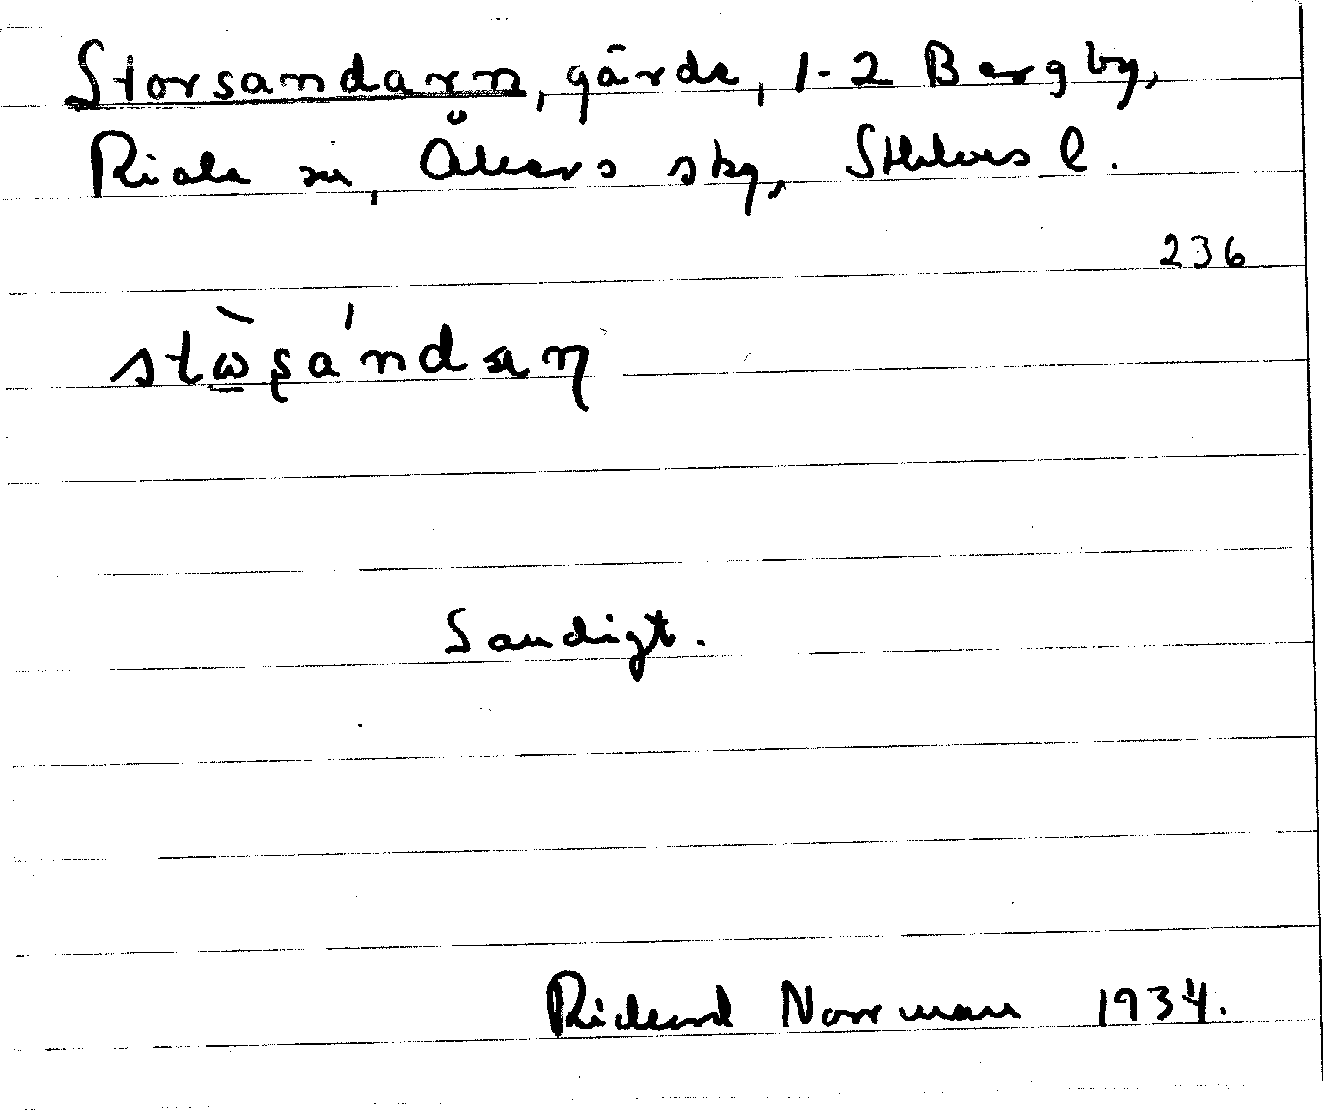 Storsandarn, gärde, 1-2 Bergby,
Riala sn, Åkers skg, Sthlms l.
236
stɷ̀ʂándaɳ
Sandigt.
Rickard Norrman 1934.